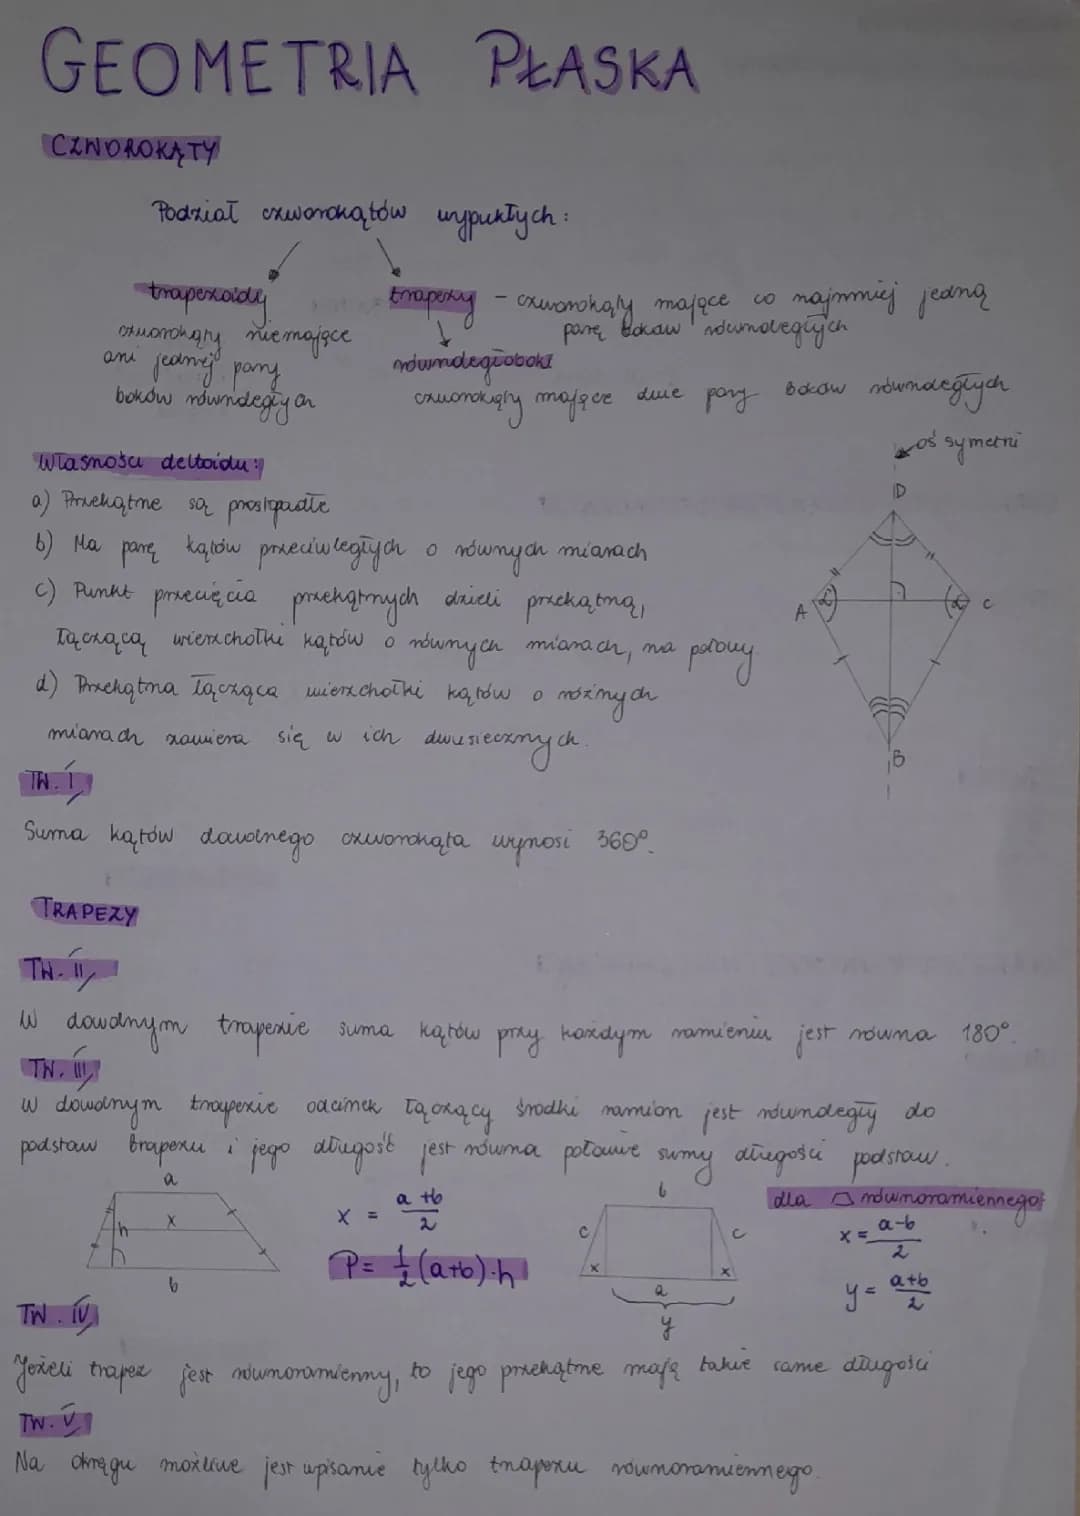 GEOMETRIA PŁASKA
CZWOROKĄTY
Podział czworokątów wypukłych:
trapezoidy
czworokąty niemające
ani jednej pary
boków równoległych
trapezy - czworokąty mające co najmniej jedną
parę boków równoległych
równoległoboki
czworokąty mające dwie pary boków równoległych
oś symetrii
Własności deltoidu:
a) Przekątne są prostopadłe
b) Ma parę kątów przeciwległych o równych miarach
c) Punkt przecięcia przekątnych dzieli przekątną,
łączącą wierzchołki kątów o równych miarach, na połowy.
d) Przekątna łącząca wierzchołki kątów o różnych
miarach zawiera się w ich dwusiecznych.
D
A α α C
B
TW. I
Suma kątów dowolnego czworokąta wynosi 360°.
TRAPEZY
TW. II
W dowolnym trapezie suma kątów przy każdym ramieniu jest równa 180°.
TW. III
W dowolnym trapezie odcinek łączący środki ramion jest równoległy do
podstaw trapezu i jego długość jest równa połowie sumy długości podstaw.
a
x
h
b
x = a+b / 2
P = 1/2 (a+b)·h
b
c c
x x
a
y
dla równoramiennego:
x = a-b / 2
y = a+b / 2
TW. IV
Jeżeli trapez jest równoramienny, to jego przekątne mają takie same długości
TW. V
Na okręgu możliwe jest wpisanie tylko trapezu równoramiennego.